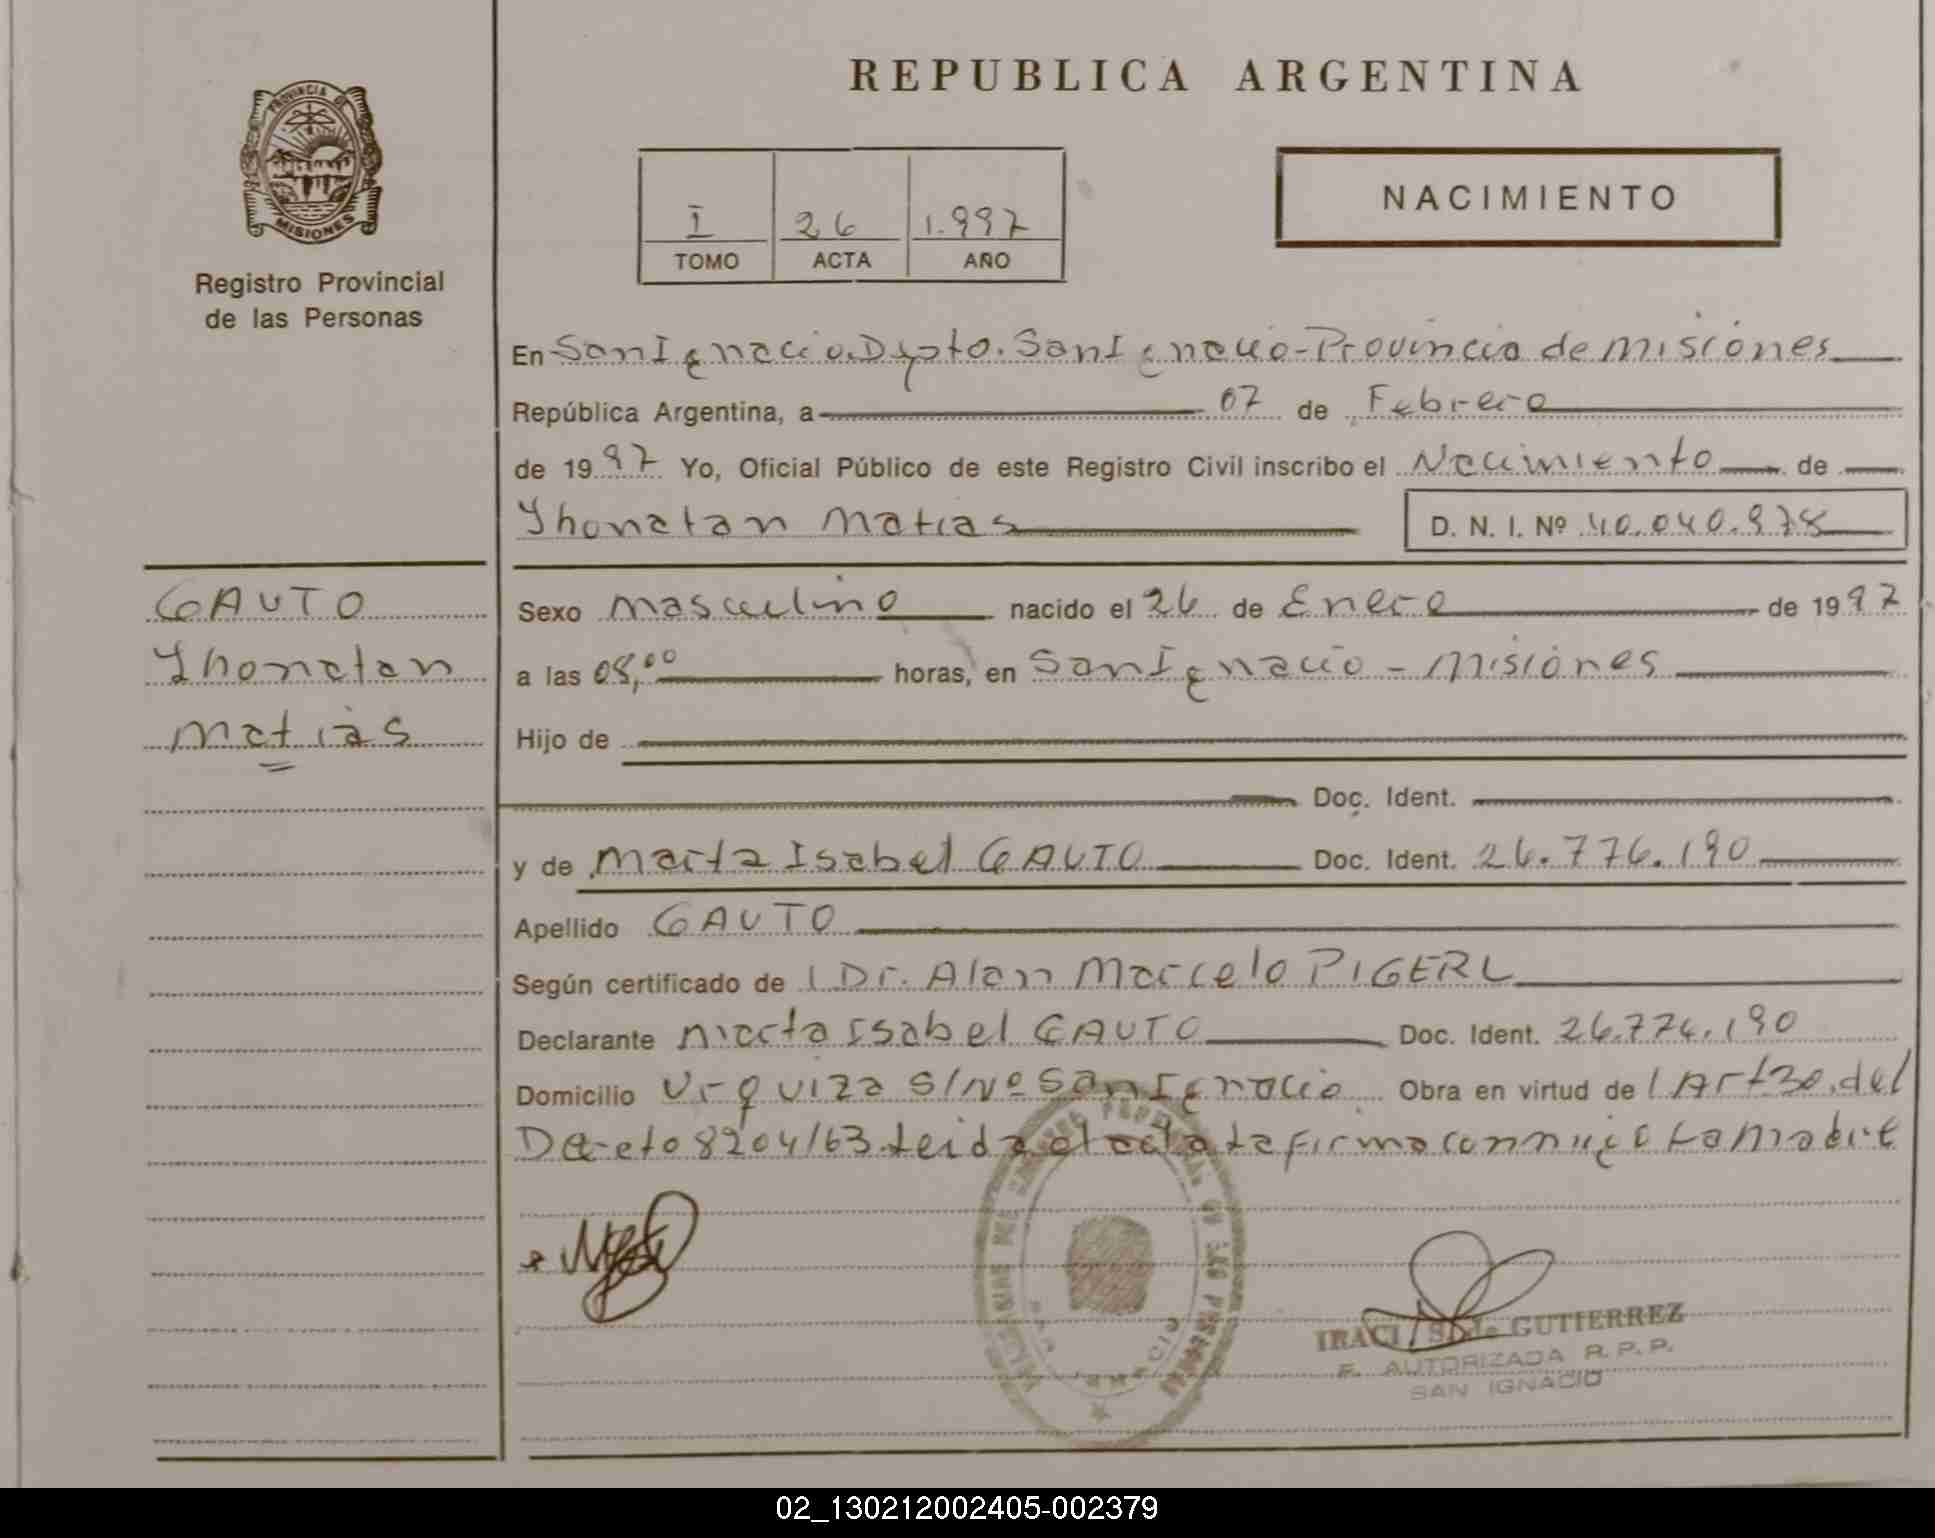 PROVINCIA DE
MISIONES
Registro Provincial
de las Personas
REPUBLICA ARGENTINA
I 26 1.997
TOMO ACTA AÑO
NACIMIENTO
En San Ignacio. Dpto. San Ignacio - Provincia de Misiones
República Argentina, a 07 de Febrero
de 1997 Yo, Oficial Público de este Registro Civil inscribo el Nacimiento de
Jhonatan Matias D. N. I. Nº 40.040.978
GAUTO
Jhonatan
Matias
Sexo Masculino nacido el 26 de Enero de 1997
a las 08,00 horas, en San Ignacio - Misiones
Hijo de
Doc. Ident.
y de Marta Isabel GAUTO Doc. Ident. 26.776.190
Apellido GAUTO
Según certificado de l Dr. Alan Marcelo PIGERL
Declarante Marta Isabel GAUTO Doc. Ident. 26.776.190
Domicilio Urquiza S/Nº San Ignacio Obra en virtud de l Art 30. del
Decreto 8204/63. Leida el acta la firma conmigo La Madre
IRACI S. de GUTIERREZ
F. AUTORIZADA R. P. P.
SAN IGNACIO
02_130212002405-002379